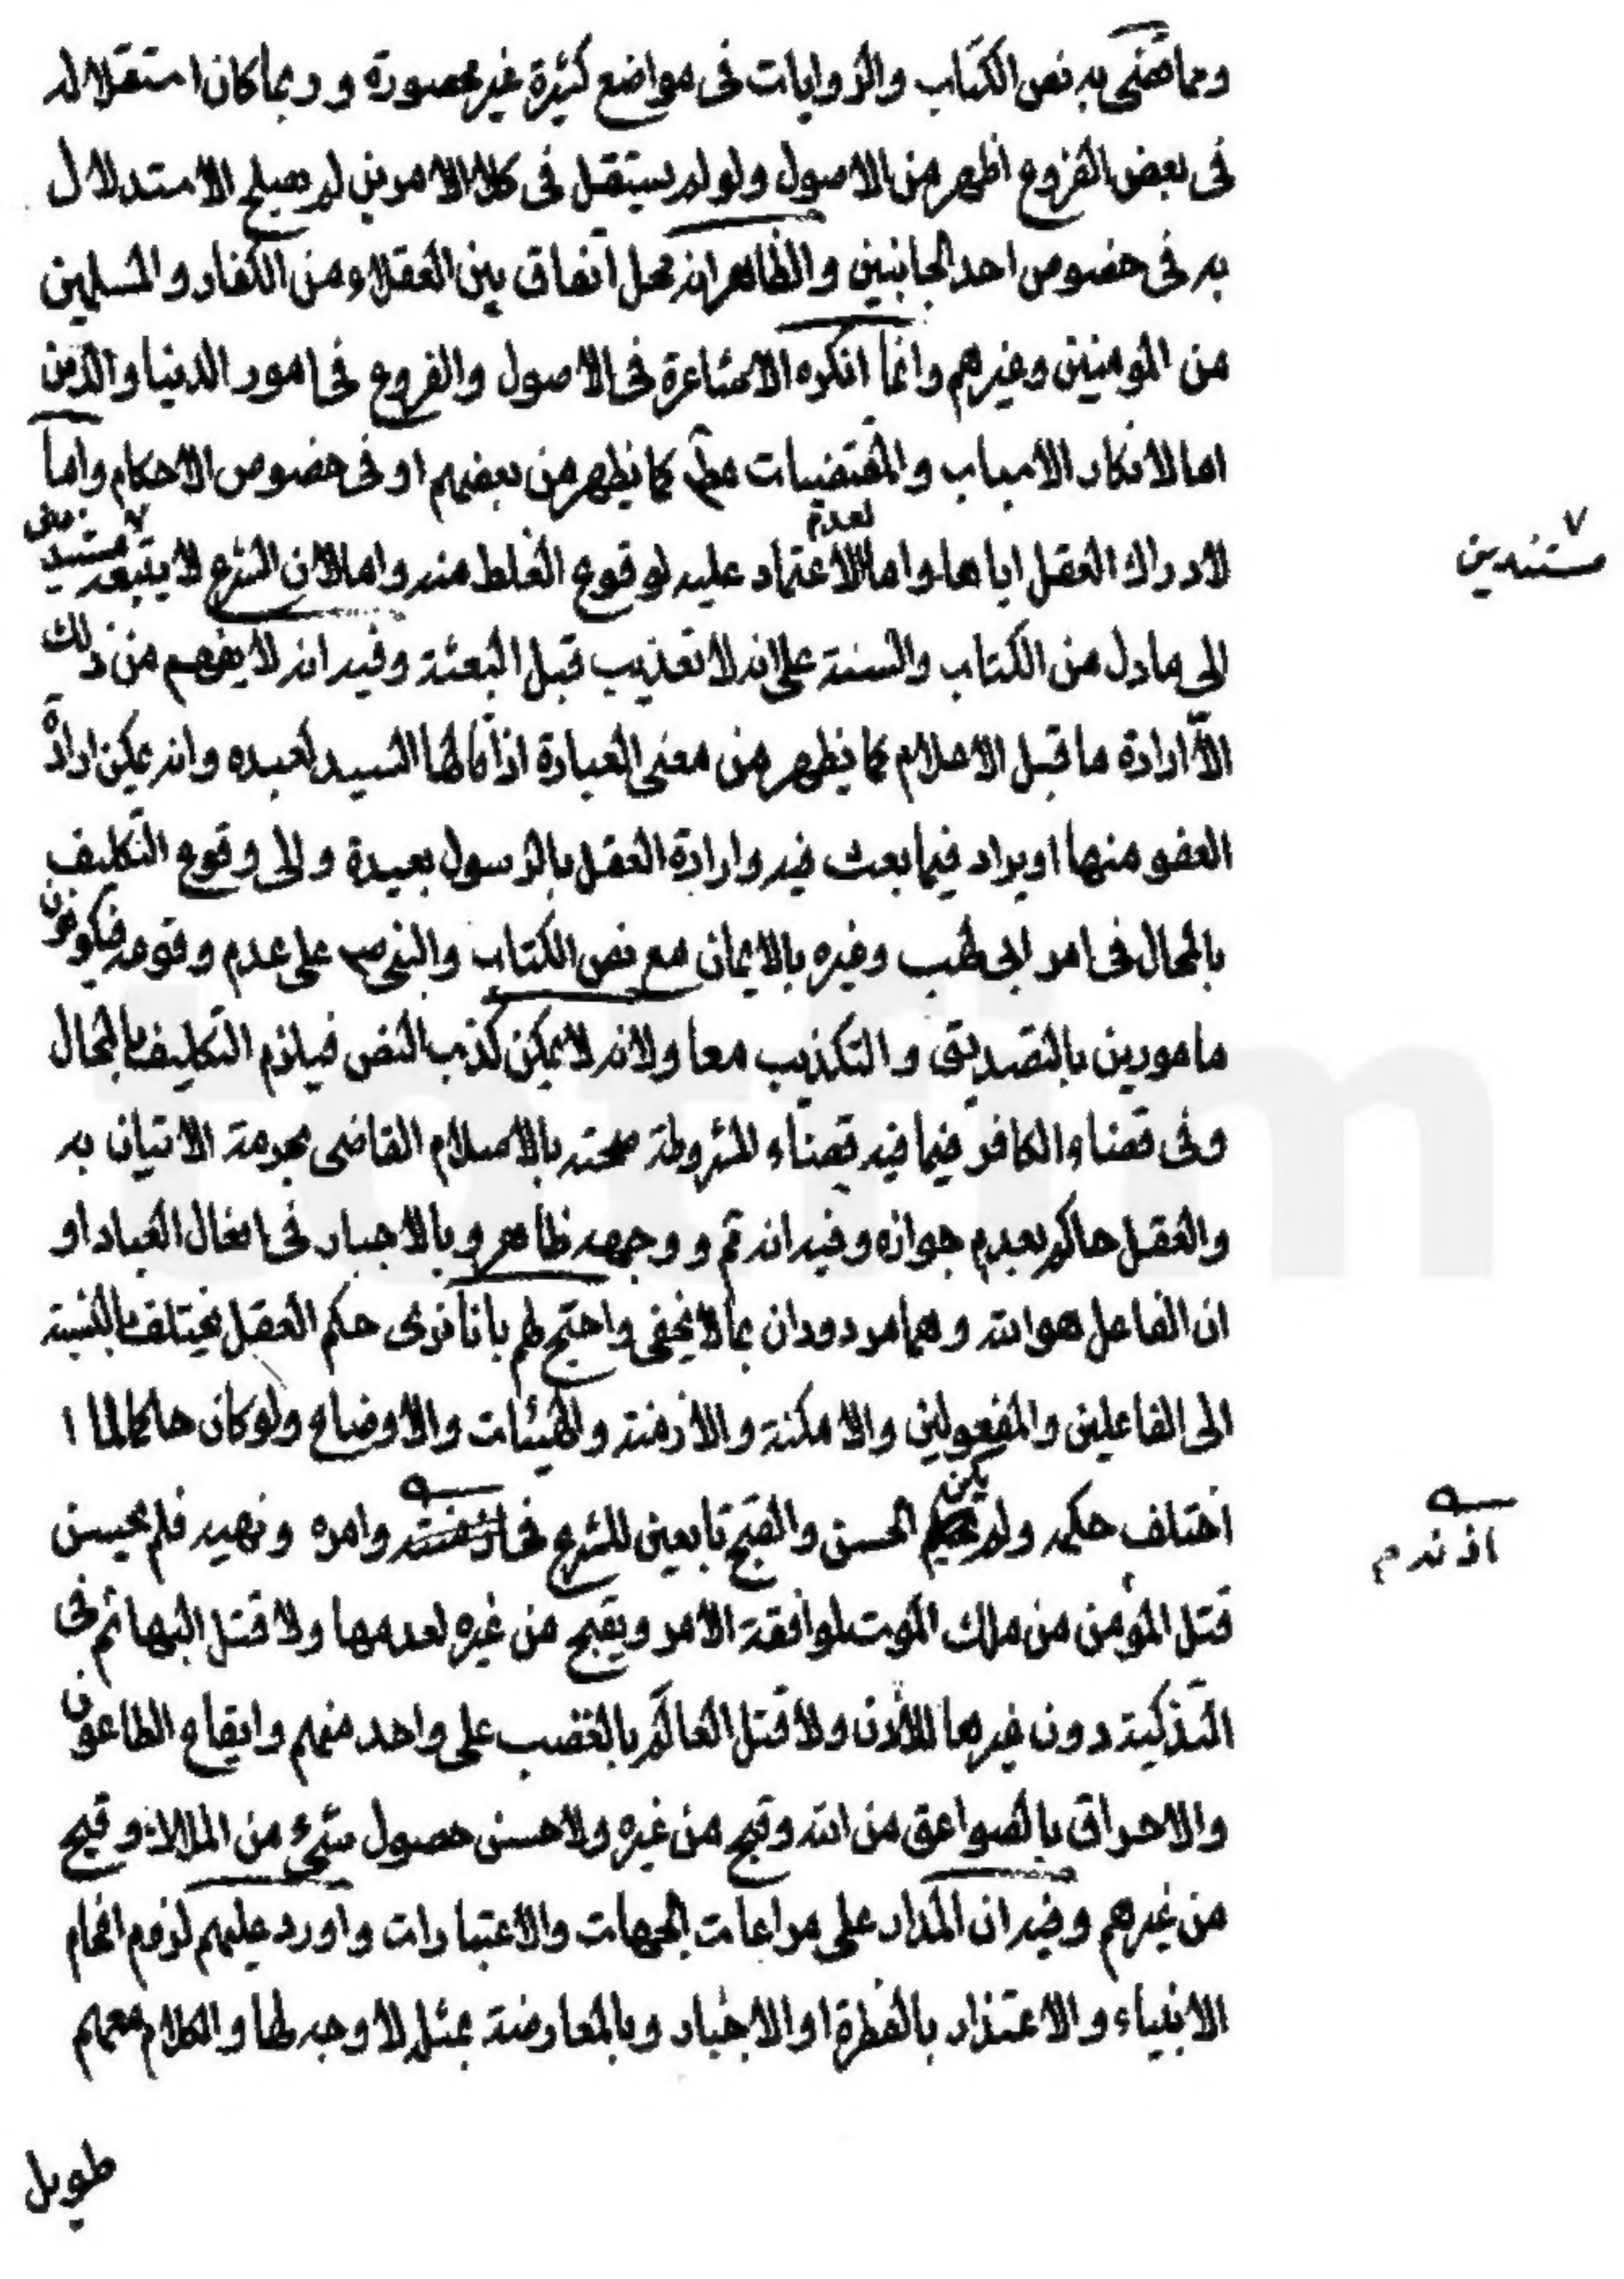 ومما قضى به نص الكتاب والروايات في مواضع كثيرة غير محصورة وربما كان استقلاله
في بعض الفروع اظهر من الاصول ولو لم يستقل في كلا الامرين لم يصلح الاستدلال
به في خصوص احد الجانبين والظاهر انه محل اتفاق بين العقلاء من الكفار والمسلمين
من المؤمنين وغيرهم وانما انكره الاشاعرة في الاصول والفروع في امور الدنيا والدين
اما لانكار الاسباب والمقتضيات مطلقا كما يظهر من بعضهم او في خصوص الاحكام واما
لادراك العقل اياها واما لعدم الاعتماد عليه لوقوع الغلط منه واما لان الشرع لا يتبعه
مستندين
الى ما دل من الكتاب والسنة على انه لا تعذيب قبل البعثة وفيه انه لا يفهم من ذلك
الا ارادة ما قبل الاعلام كما يظهر من معنى العبارة اذا قالها السيد لعبده وانه يمكن ارادة
العفو منها او يراد فيما بعث فيه وارادة العقل بالرسول بعيدة والى وقوع التكليف
بالمحال في امر ابي لهب وغيره بالايمان مع نص الكتاب والنبي ص على عدم وقوعه فيكونون
مامورين بالتصديق والتكذيب معا ولانه لا يمكن كذب النص فيلزم التكليف بالمحال
وفي قضاء الكافر فيما فيه قضاء لمشروطة صحته بالاسلام القاضي بحرمة الاتيان به
والعقل حاكم بعدم جوازه وفيه انه تم ووجهه ظاهر وبالاجبار في افعال العباد او
ان الفاعل هو الله وهما مردودان بما لا يخفى واحتج لهم بانا نرى حكم العقل يختلف بالنسبة
الى الفاعلين والمفعولين والامكنة والازمنة والهيئات والاوضاع ولو كان حاكما لما ا
اختلف حكمه ولم يكن الحسن والقبح تابعين للشرع في وامره ونهيه فلم يحسن
اذنه م
قتل المؤمن من ملك الموت لموافقة الامر ويقبح من غيره لعدمها ولا قتل البهائم في
التذكية دون غيرها للاذن ولا قتل العالم بالغضب على واحد منهم وايقاع الطاعون
والاحراق بالصواعق من الله وقبح من غيره ولا حسن حصول شيء من الملاك وقبح
من غيرهم وفيه ان المدار على مراعات الجهات والاعتبارات واورد عليهم لزوم افحام
الانبياء والاعتذار بالفطرة او الاخبار وبالمعارضة بمثل لا وجه لها والكلام معهم
طويل